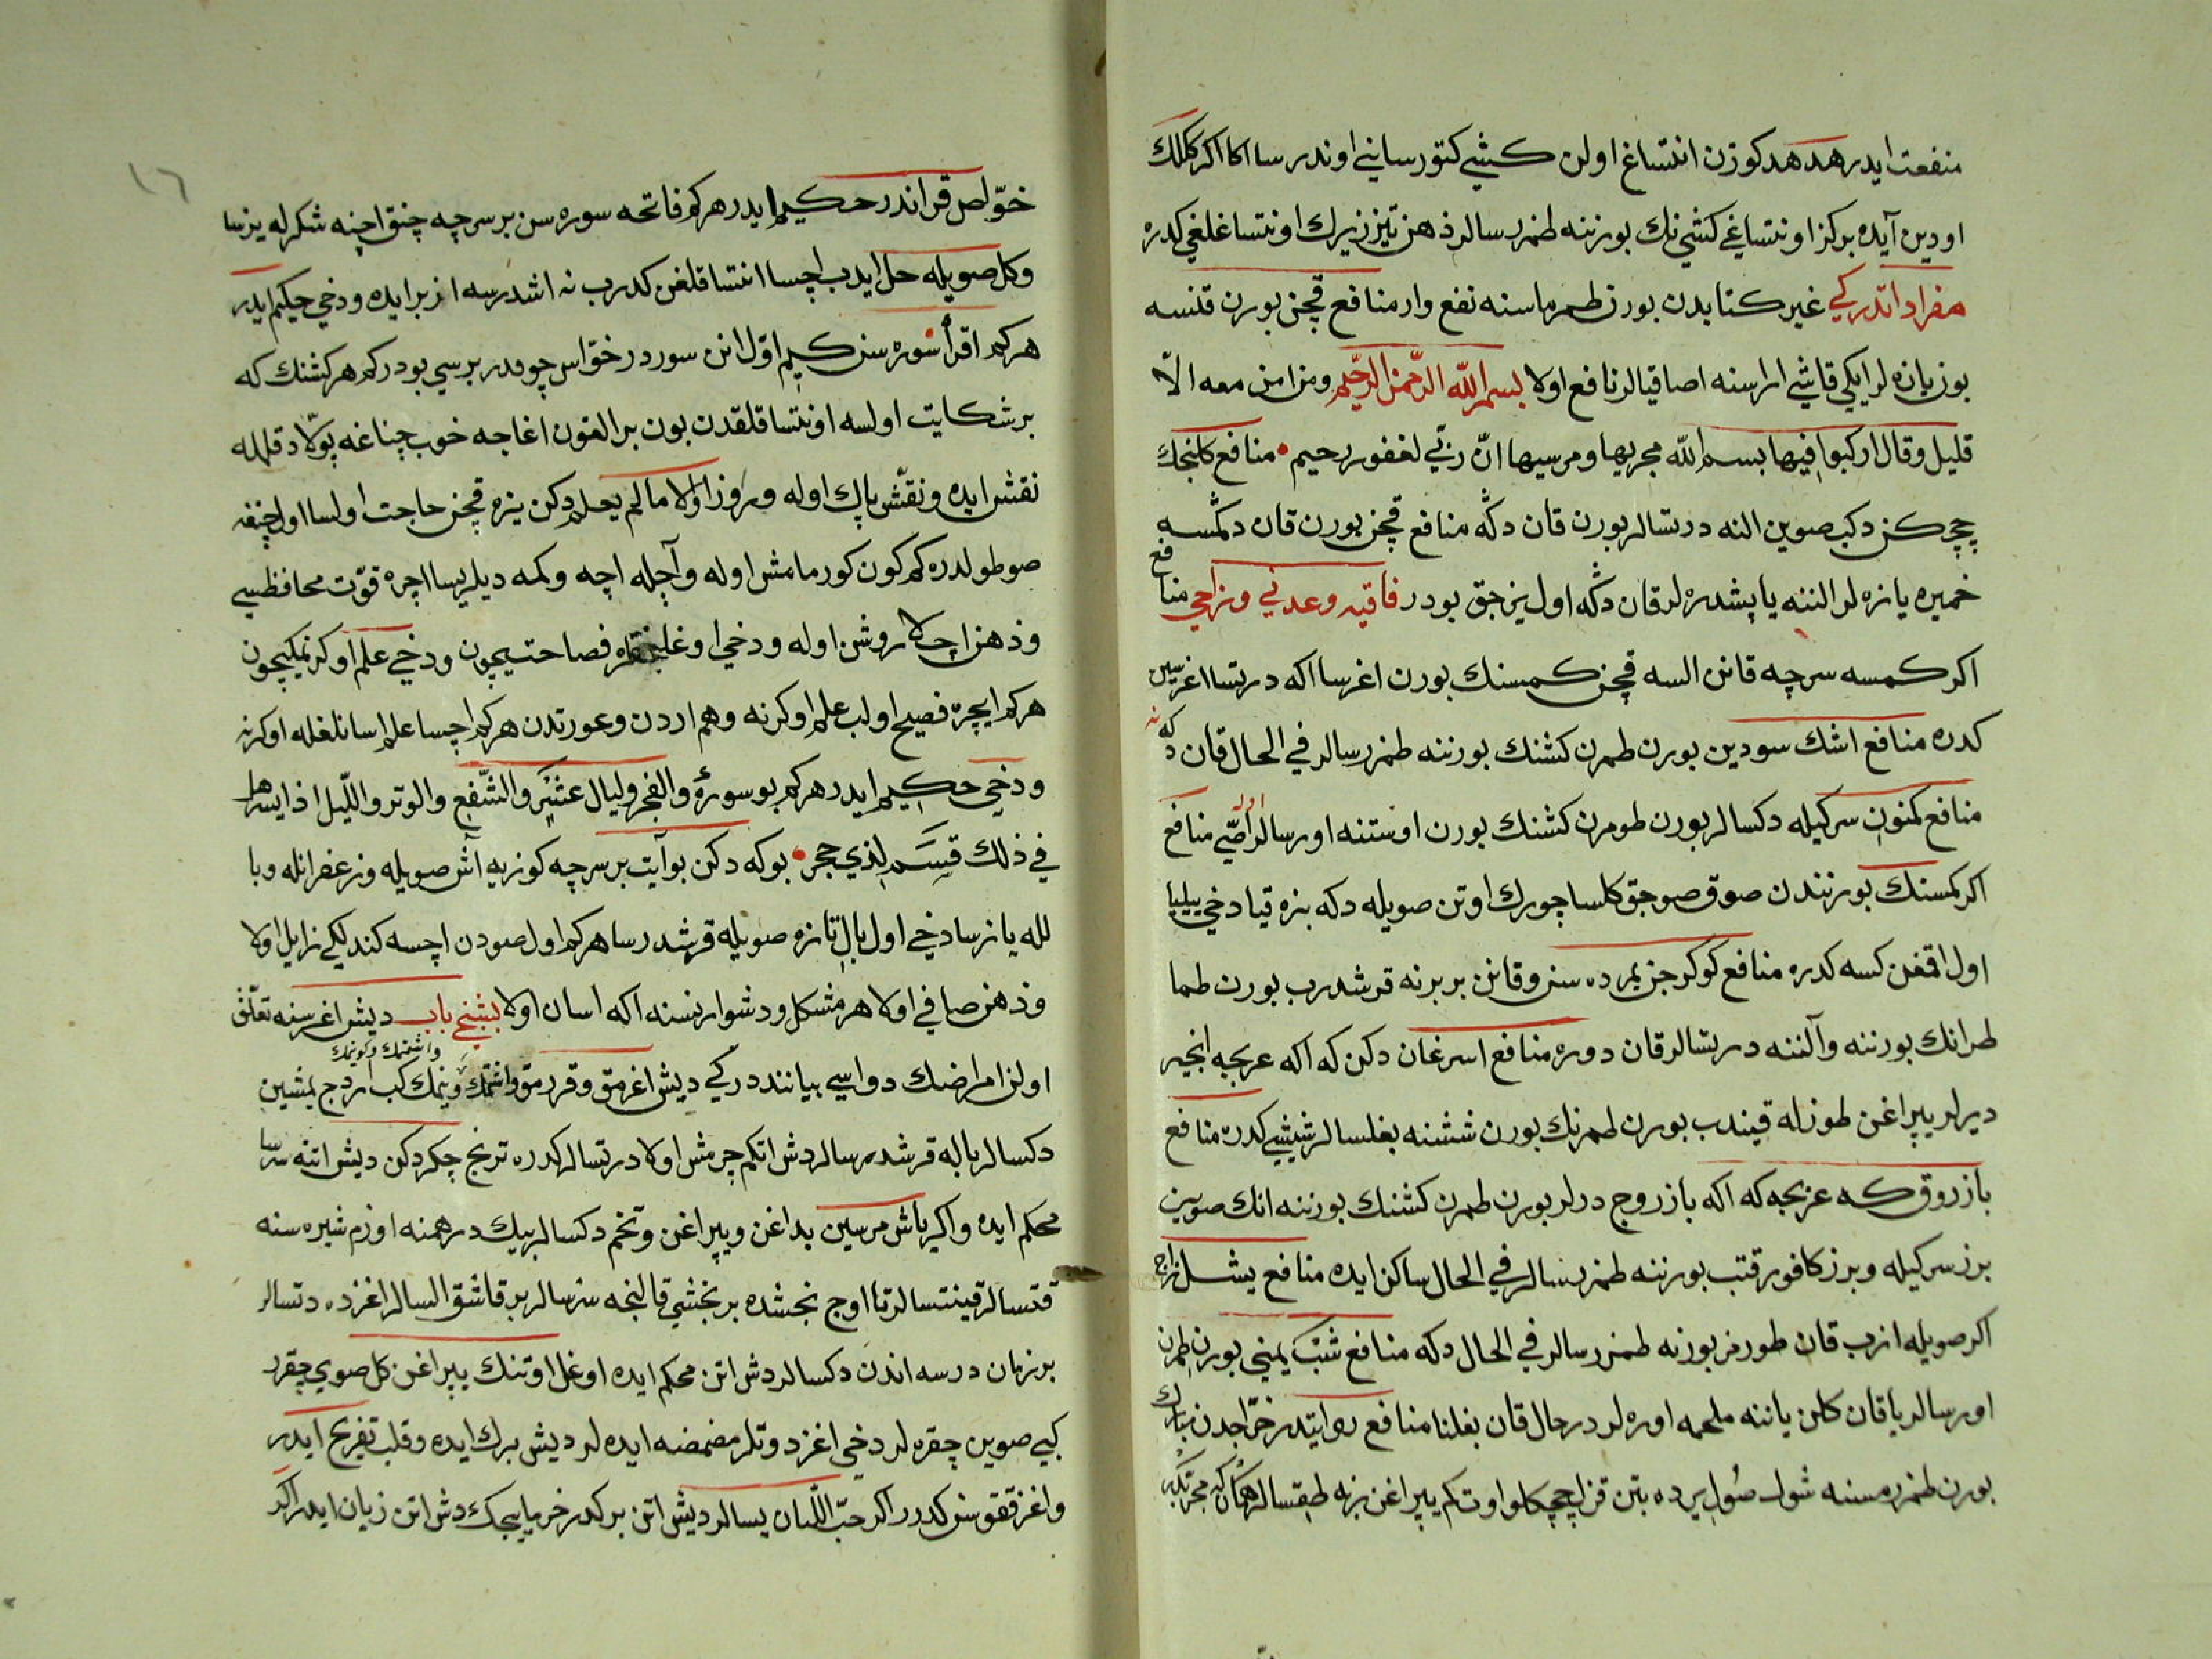 منفعت ايدر هدهد كوزن انتساغ اولن كشي كتورسا يني اوندرسا اكا اكر كللك
اودين آيده بركز اونتساغي كشي نك بورننه طمزرسالر ذهن تيز زيرك اونتساغلغي كدره
مفراداتدر كي غير كتابدن بورن طمرماسنه نفع وار منافع قچن بورن قنسه
بوني يازه لر ايكي قاشي اراسنه اصاقيالر نافع اولا بسم الله الرحمن الرحيم ومن امن معه الّا
قليل وقال اركبوا فيها بسم الله مجريها ومرسيها انّ ربّي لغفور رحيم منافع كلنجك
چچكن دكب صوين النه درتسالر بورن قان دكه منافع قچن بورن قان دكمسه
خميره يازه لر الننه ياپشدره لر قان دكه اول يزجق بودر فاقيه وعدني ومزاجي منافع
اكر كمسه سرچه قانن السه قچن كمسنك بورن اغرسا اكه درتسا اغريسن
كدره منافع اشك سودين بورن طمرن كشنك بورننه طمزرسالر في الحال قان دكه
منافع كمنون سركيله دكسالر بورن طومرن كشنك بورن اوستنه اورسالر اصّي منافع
اكر كمسنك بورنندن صوق صوجق كلسا چورك اوتن صويله دكه بزه قيا دخي ييليا
اول اقمغن كسه كدره منافع كوكرجن يمرده سن وقانن بربرنه قرشدرب بورن طما
طمرانك بورننه وآلننه درتسالر قان دوره منافع اسرغان دكن كه اكه عربجه انجير
ديرلر يپراغن طوزله قيندب بورن طمرنك بورن ششنه بغلسالر شيشي كدره منافع
بازروق كه عربجه كه اكه بازروج درلر بورن طمرن كشنك بورننه انك صوين
برز سركيله وبرز كافور قتب بورننه طمزرسالر في الحال ساكن ايده منافع يشل زاج
اكر صويله ازب قان طورمز بورنه طمزرسالر في الحال دكه منافع شبّ يمني بورن طمرن
اورسالر يا قان كلن ياننه ملحمه اوره لر درحال قان بغلنا منافع روايتدر خرّاجدن
بورن طمزرمسنه شول صول يرده بتن قزل چچكلو اوت كم يپراغن بزنه طقسالر
خوّاص قراندر حكيم ايدر هر كم فاتحه سوره سن بر سرچه چنق اچنه شكرله يزسا
وكل صويله حل ايدب اچسا انتساقلغن كدرب نه اشدرسه ازبر ايده ودخي حيكم ايدر
هر كم اقرأ سوره سن كم اوّل انن سوردر خوّاس چوقدر برسي بودر كم هر كشنك كه
بر شكايت اولسه اونتساقلقدن بون بر التون اغاجه خوب چناغه پولّاد قلمله
نقش ايده ونقّش پاك اوله وروز اوّلا ما لم يعلم دكن يزه قچن حاجت اولسا اول چنغه
صو طولدره كم كون كورمامش اوله وآجله اچه وكمه ديلريسا اچره قوّت محافظسي
وذهن اچلا روشن اوله ودخي اوغلنجقلره فصاحت ايچون ودخي علم اوكرنمكيچون
هر كم ايچره فصيح اولب علم اوكرنه وهم اردن وعورتدن هر كم اچسا علم اسانلغله اوكرنه
ودخي حكيم ايدر هر كم بو سورۀ والفجر وليال عشر والشّفع والوتر واللّيل اذا يسر هل
في ذلك قسم لذي حجر بوكه دكن بو آيت بر سرچه كوزيه آش صويله وزعفرانله وبا
لله يازسا دخي اول بالِ تازه صويله قرشدرسا هر كم اول صودن اچسه كندليكي زايل اولا
وذهن صافي اولا هر مشكل ودشوار نسنه اكه اسان اولا بشنجي باب ديش اغرسنه تعلّق
اولن امراضك دواسي بيانندهدر كي ديش اغرمق وقردمق واشتمك وينمك كب ردج يمشين
دكسالر باله قرشدرسالر دش اتكم چرمش اولا درتسالر كدره ترنج چكردكن ديش اتنه سرسا
محكم ايده واكر ياش مرسين بداغن ويپراغن وتخم دكسالر بيك درهمنه اوزم شيره سنه
قتسالر قينتسالر تا اوچ بخشده بر بخشي قالنجه سزسالر بر قاشق السالر اغزده دتسالر
بر زمان درسه اندن دكسالر دش اتن محكم ايده اوغل اوتنك يپراغن كل صويي چقرر
كبي صوين چقره لر دخي اغزد وتلر مضمضه ايده لر ديش برك ايده وقلب تفريح ايدر
واغز ققوسن كدرر اكر حبّ اللّبان يسالر ديش اتن بركدر خرما يجك دش اتن زيان ايدر اكر